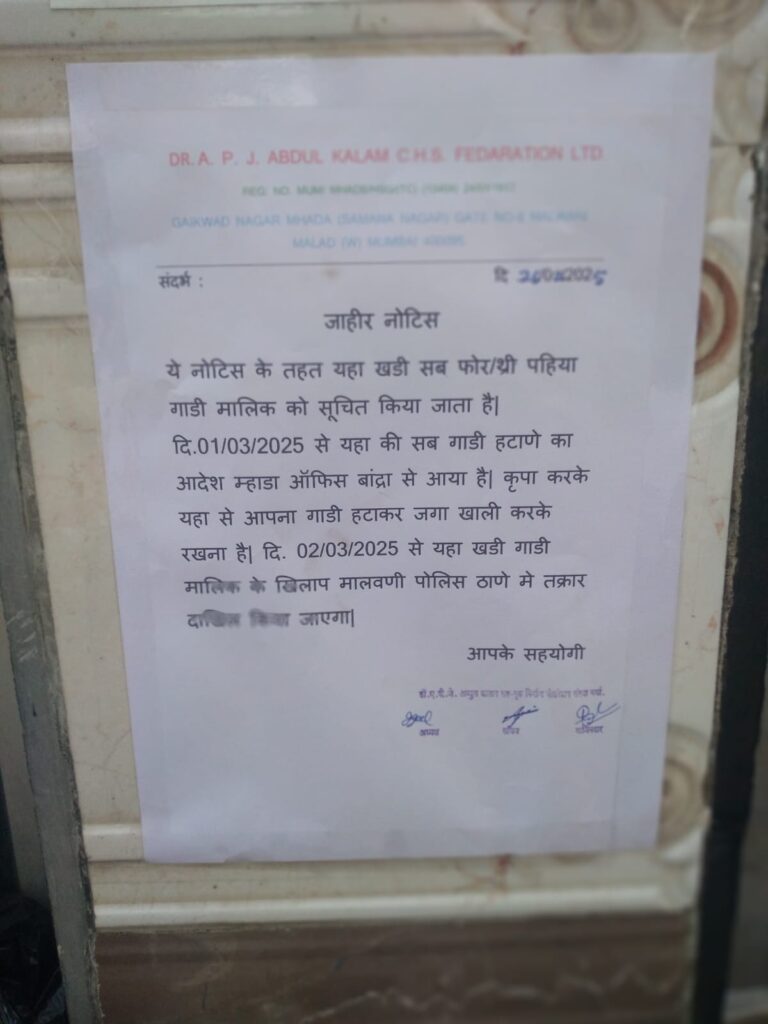 DR. A. P. J. ABDUL KALAM C.H.S. FEDARATION LTD.
REG. NO. MUM/
GAIKWAD NAGAR MHADA (SAMANA NAGAR) GATE NO-8 MALAWNI
MALAD (W) MUMBAI 400095.
संदर्भ :
दि 2025
जाहीर नोटिस
ये नोटिस के तहत यहा खडी सब फोर/थ्री पहिया
गाडी मालिक को सूचित किया जाता है|
दि.01/03/2025 से यहा की सब गाडी हटाणे का
आदेश म्हाडा ऑफिस बांद्रा से आया है| कृपा करके
यहा से आपना गाडी हटाकर जगा खाली करके
रखना है| दि. 02/03/2025 से यहा खडी गाडी
मालिक के खिलाप मालवणी पोलिस ठाणे मे तक्रार
दाखिल किया जाएगा|
आपके सहयोगी
डॉ.ए.पी.जे. अब्दुल कलाम
अध्यक्ष सचिव खजिनदार